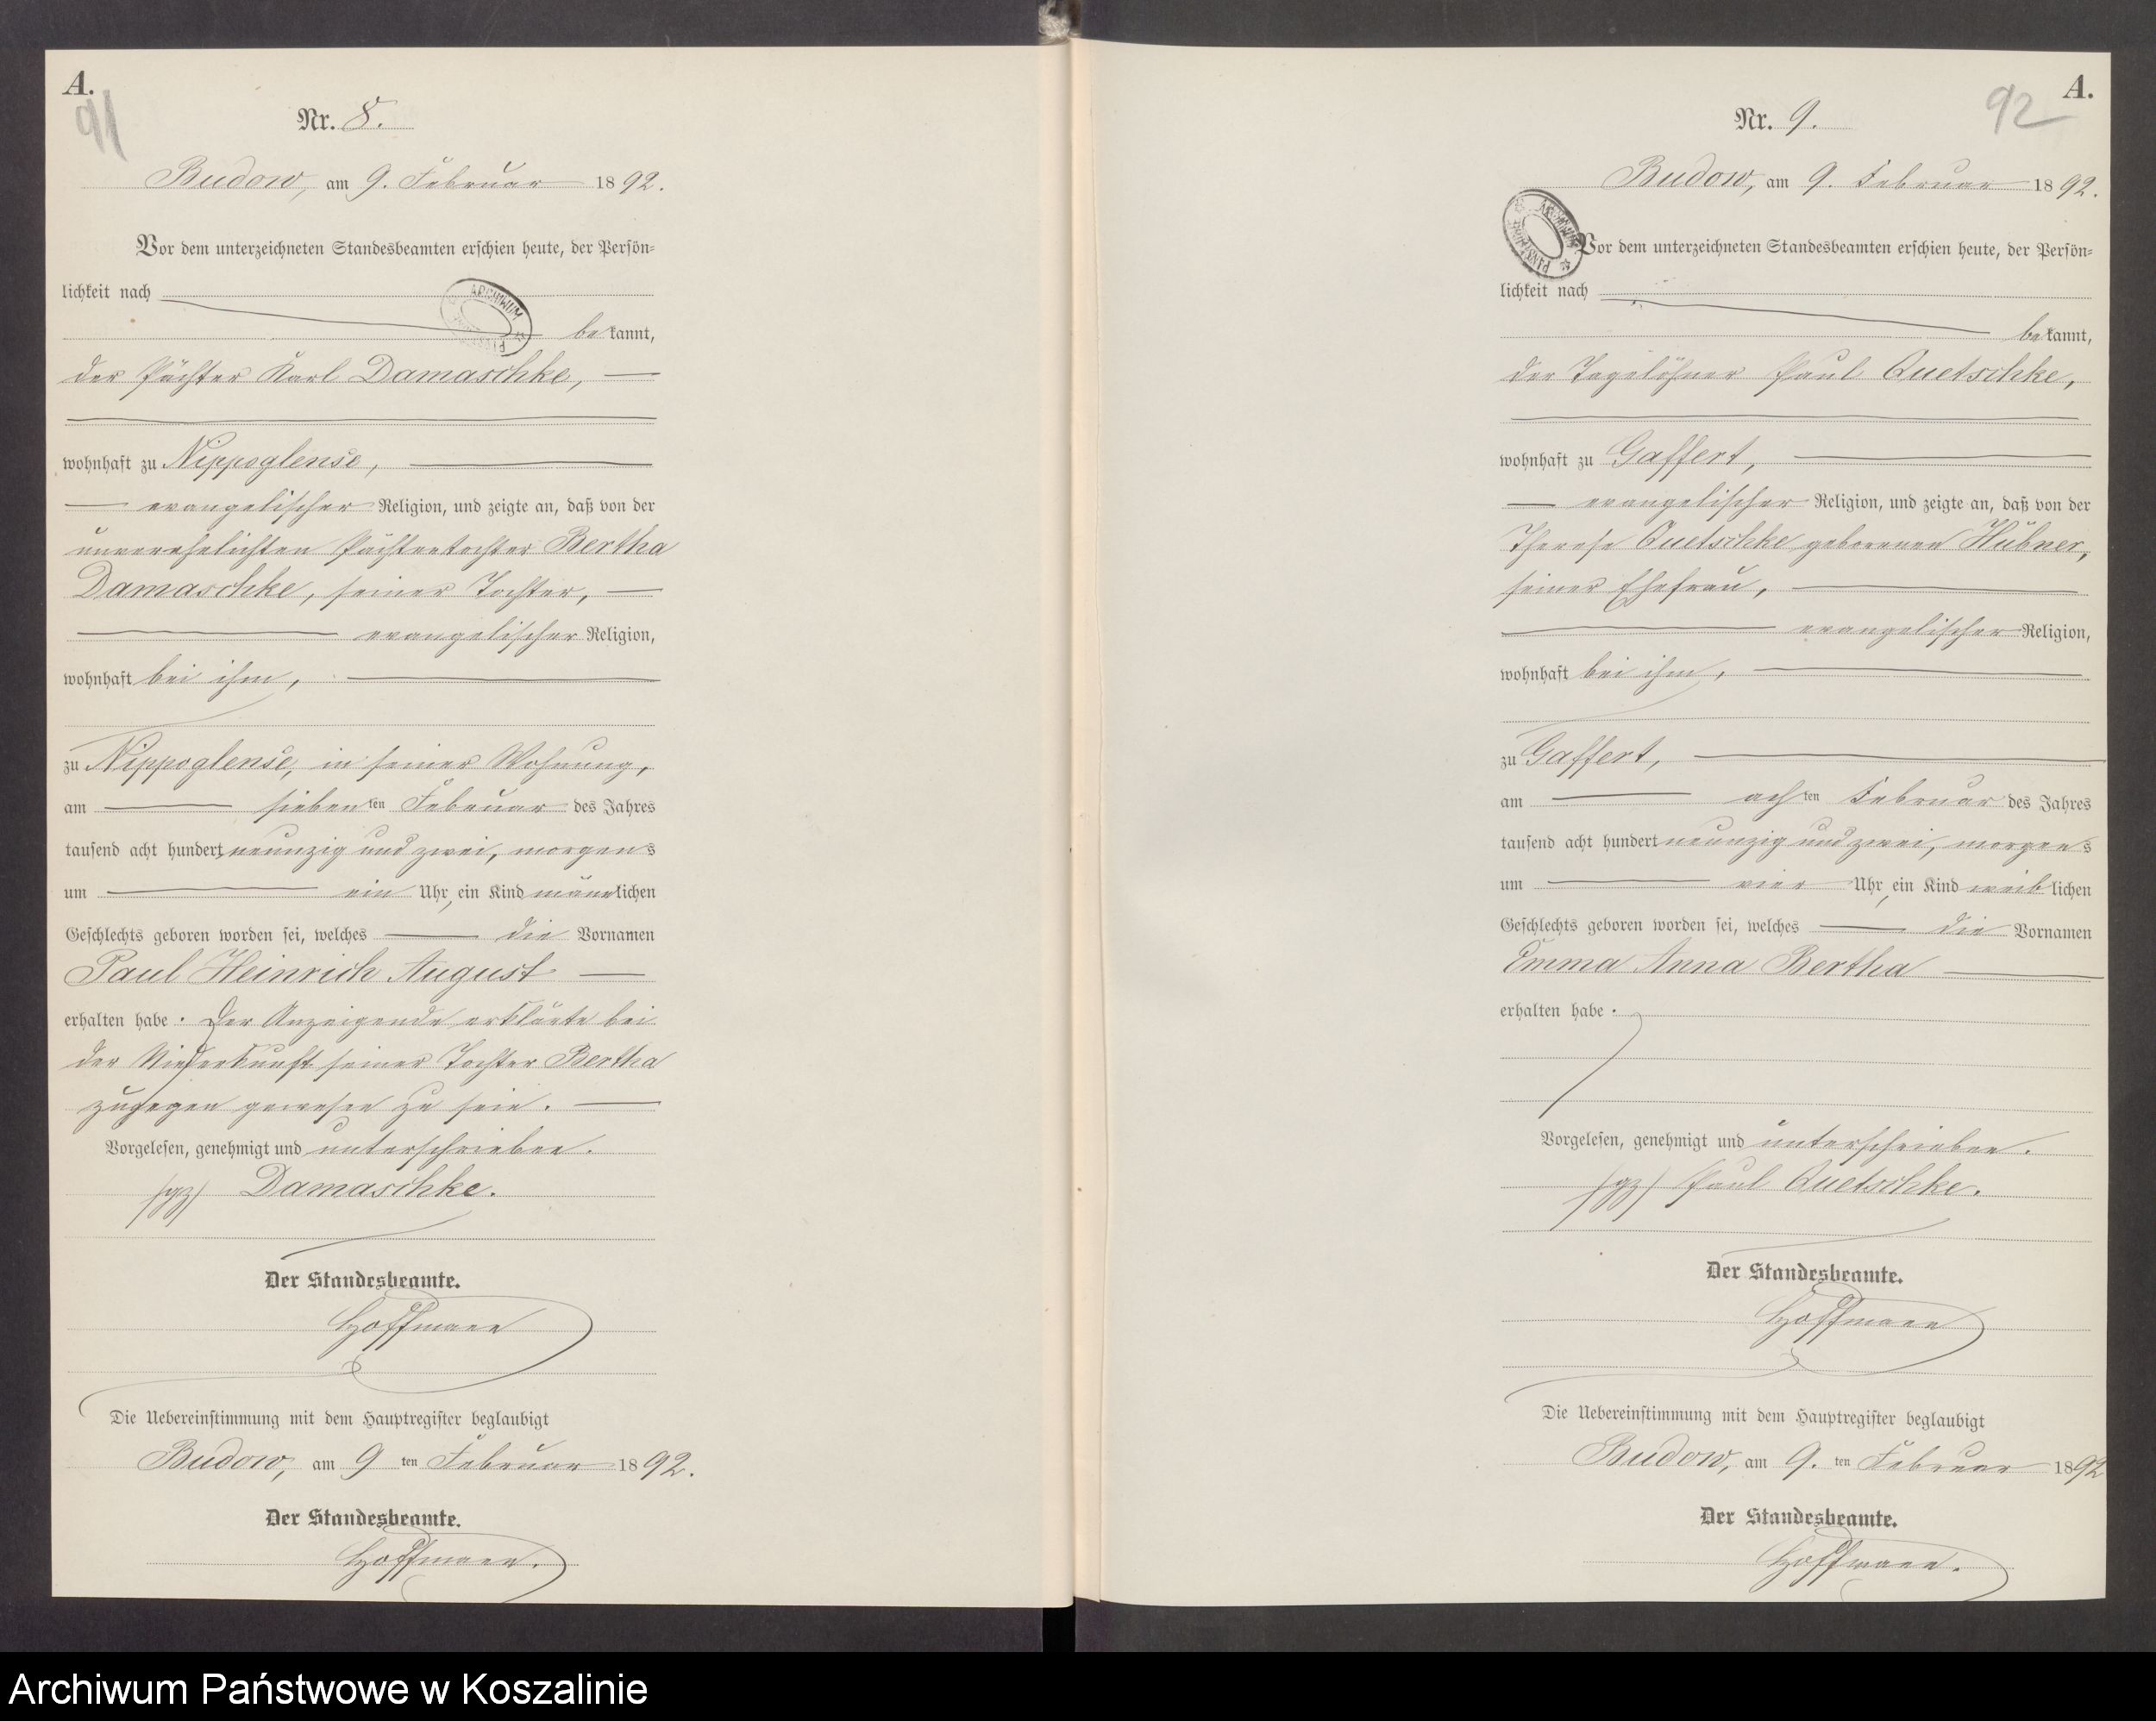 A.
91
Nr. 8.
Budow, am 9. Februar 1892.
Vor dem unterzeichneten Standesbeamten erschien heute, der Persön-
lichkeit nach
ARCHIWUM
bekannt,
der Pächter Karl Damaschke,
wohnhaft zu Nippoglense,
evangelischer Religion, und zeigte an, daß von der
unverehelichten Pächtertochter Bertha
Damaschke, seiner Tochter,
evangelischer Religion,
wohnhaft bei ihm,
zu Nippoglense, in seiner Wohnung,
am siebenten Februar des Jahres
tausend acht hundert neunzig und zwei, morgens
um ein Uhr, ein Kind männlichen
Geschlechts geboren worden sei, welches die Vornamen
Paul Heinrich August
erhalten habe. Der Anzeigende erklärte bei
der Niederkunft seiner Tochter Bertha
zugegen gewesen zu sein.
Vorgelesen, genehmigt und unterschrieben.
(gz) Damaschke.
Der Standesbeamte.
Hoffmann
Die Uebereinstimmung mit dem Hauptregister beglaubigt
Budow, am 9 ten Februar 1892.
Der Standesbeamte.
Hoffmann.
A.
92
Nr. 9.
Budow, am 9. Februar 1892.
Vor dem unterzeichneten Standesbeamten erschien heute, der Persön-
lichkeit nach
bekannt,
der Tagelöhner Paul Quetschke,
wohnhaft zu Gaffert,
evangelischer Religion, und zeigte an, daß von der
Therese Quetschke geborenen Hübner,
seiner Ehefrau,
evangelischer Religion,
wohnhaft bei ihm,
zu Gaffert,
am achten Februar des Jahres
tausend acht hundert neunzig und zwei, morgens
um vier Uhr, ein Kind weiblichen
Geschlechts geboren worden sei, welches die Vornamen
Emma Anna Bertha
erhalten habe.
Vorgelesen, genehmigt und unterschrieben.
(gz) Paul Quetschke.
Der Standesbeamte.
Hoffmann
Die Uebereinstimmung mit dem Hauptregister beglaubigt
Budow, am 9. ten Februar 1892
Der Standesbeamte.
Hoffmann.
Archiwum Państwowe w Koszalinie